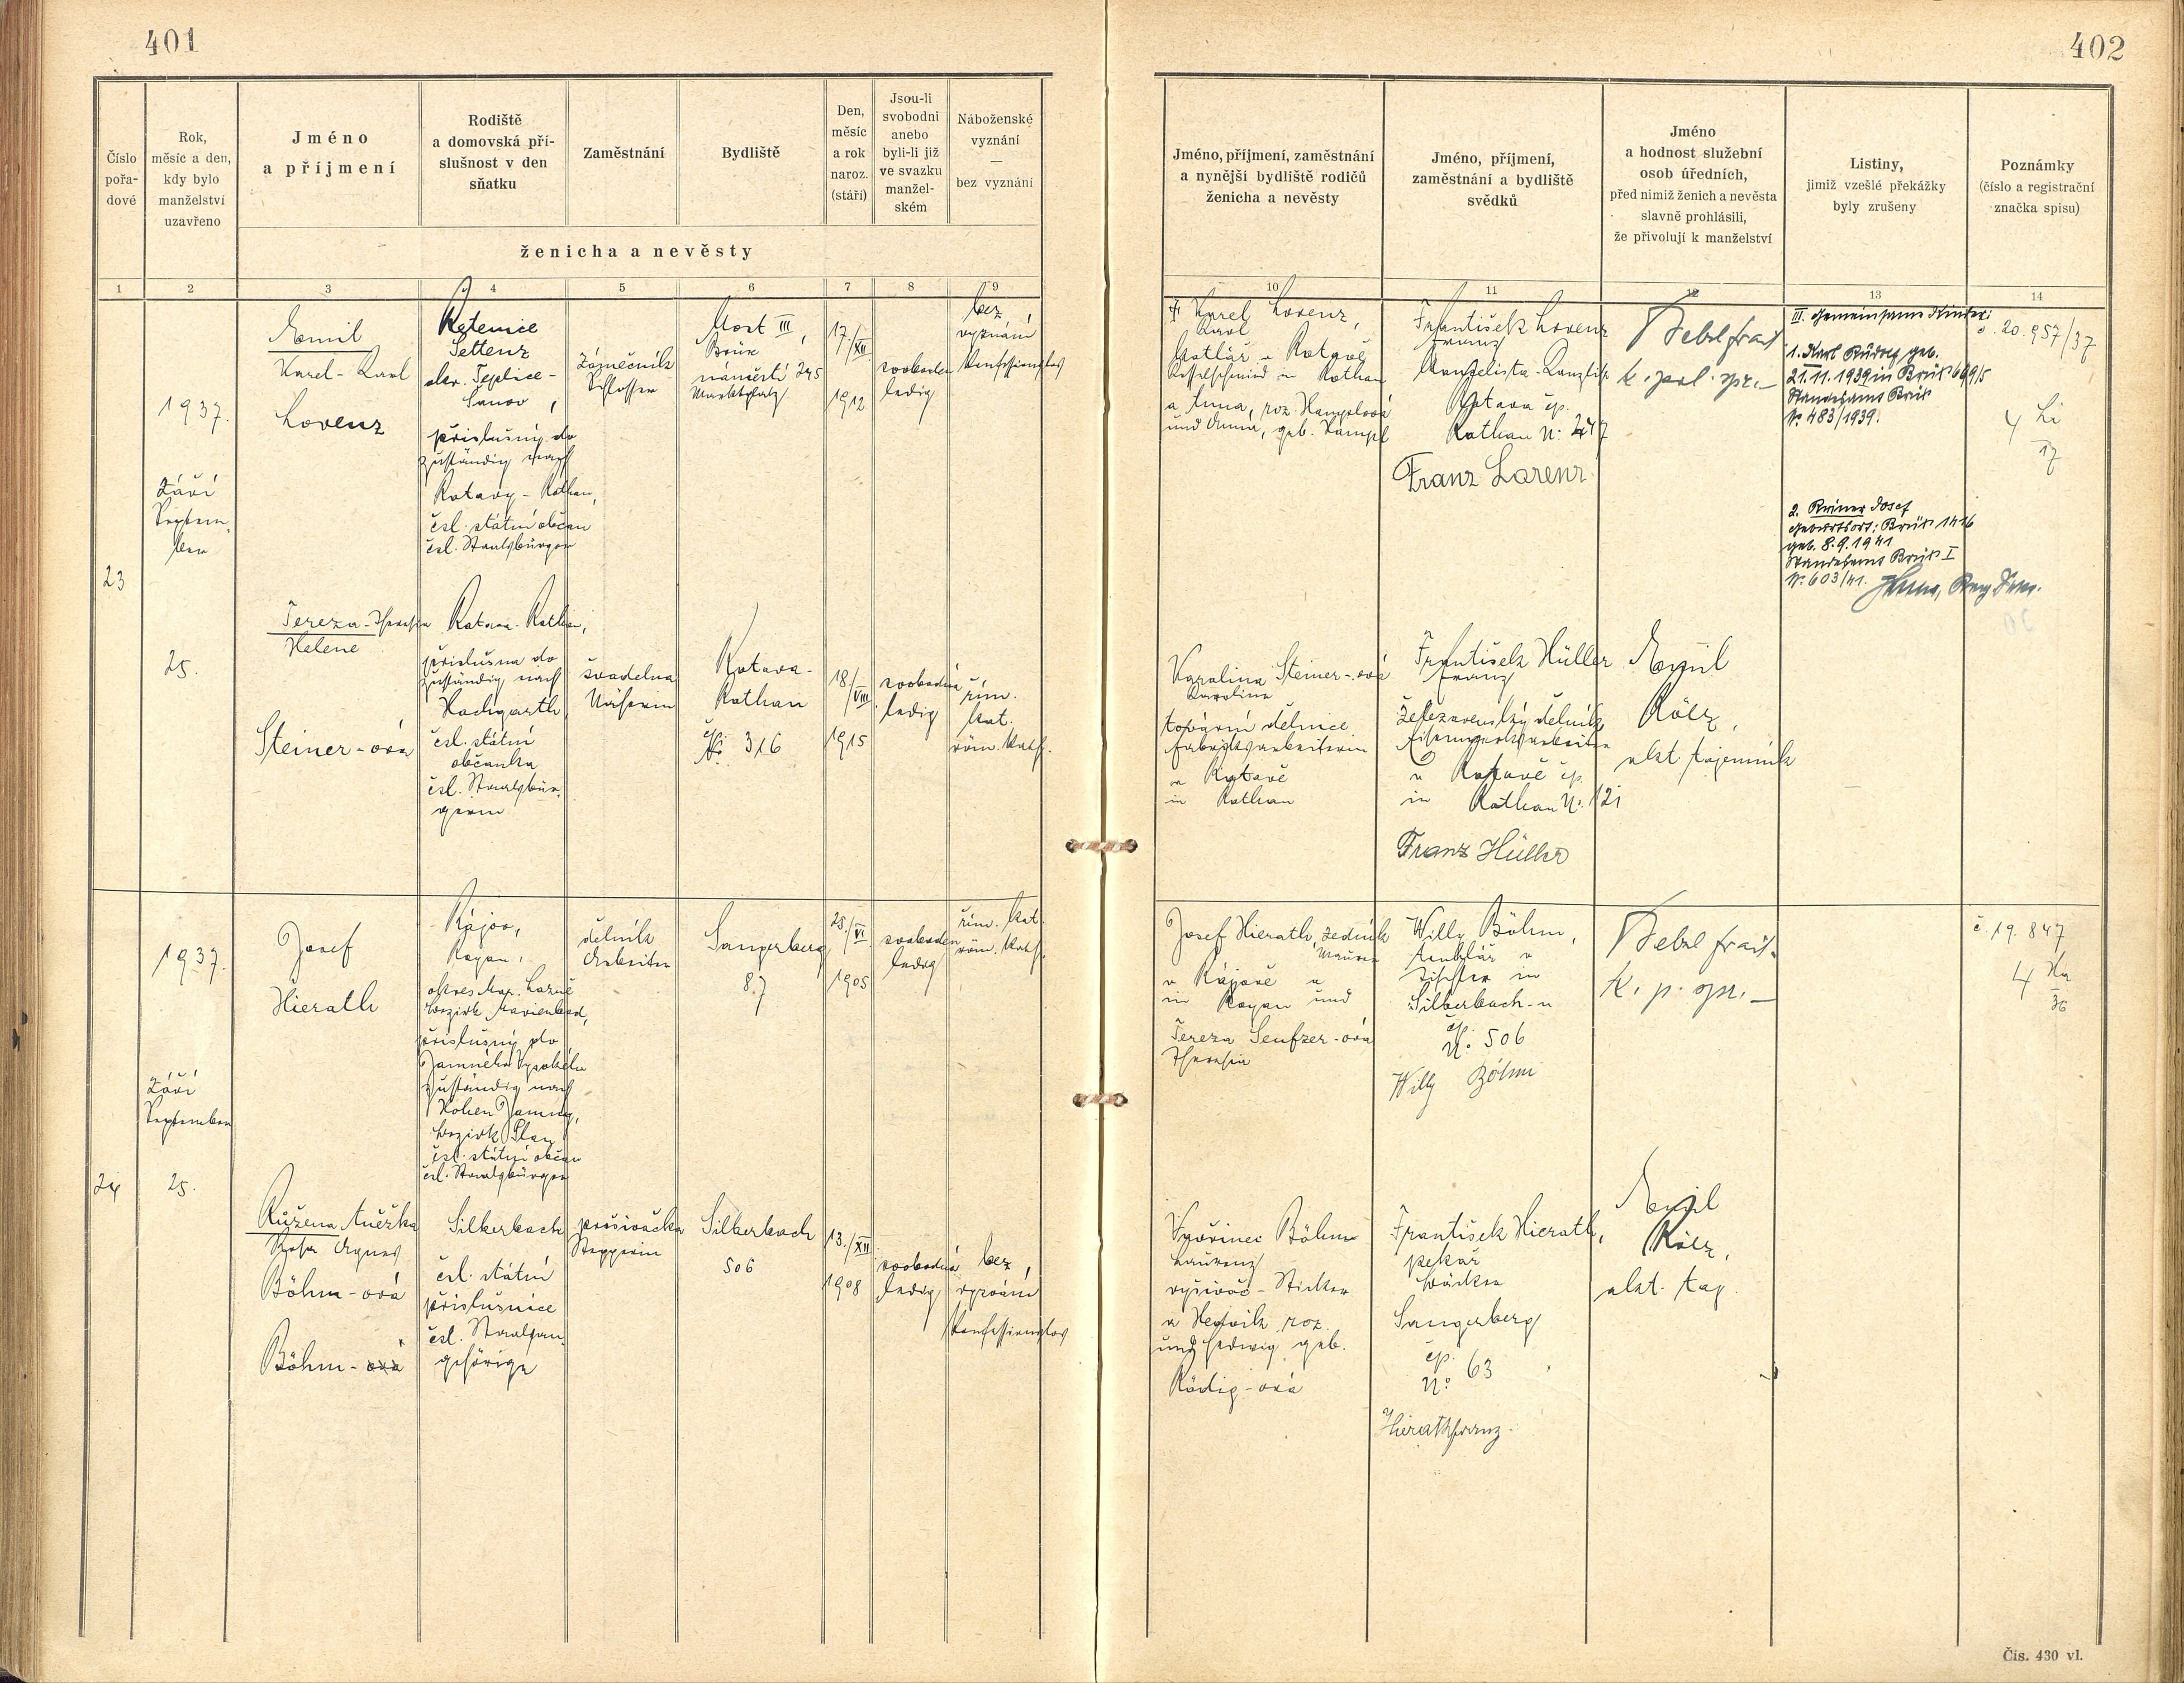 401
Číslo
pořa-
dové
Rok,
měsíc a den,
kdy bylo
manželství
uzavřeno
Jméno
a příjmení
Rodiště
a domovská pří-
slušnost v den
sňatku
Zaměstnání
Bydliště
Den,
měsíc
a rok
naroz.
(stáří)
Jsou-li
svobodni
anebo
byli-li již
ve svazku
manžel-
ském
Náboženské
vyznání
—
bez vyznání
ženicha a nevěsty
1 2 3 4 5 6 7 8 9
23
1937.
Září
Septem-
ber
25.
Emil
Karel - Karl
Lorenz
Řetenice
Settenz
okr. Teplice -
Šanov,
příslušný do
zuständig nach
Rotavy - Rothau,
čsl. státní občan
čsl. Staatsbürger
Zámečník
Schlosser
Most III,
Brüx
náměstí 245
Marktplatz
17./XII.
1912
svoboden
ledig
bez
vyznání
konfessionslos
Tereza - Theresia
Helene
Steiner - ová
Rotava - Rothau,
příslušna do
zuständig nach
Hochgarth,
čsl. státní
občanka
čsl. Staatsbür-
gerin
švadlena
Näherin
Rotava -
Rothau
čp.
No. 316
18/VIII.
1915
svobodná
ledig
řím.
kat.
röm. kath.
24
1937.
Září
September
25.
Josef
Hierath
Rájov,
Royau,
okres Mar. Lázně
bezirk Marienbad,
příslušný do
Jamného Vysokého
zuständig nach
Hohen Jamny,
bezirk Plan
čsl. státní občan
čsl. Staatsbürger
dělník
Arbeiter
Sangerberg
87
28./VI.
1905
svoboden
ledig
řím. kat.
röm. kath.
Růžena Anežka
Rosa Agnes
Böhm - ová
Böhm - ová
Silberbach
čsl. státní
příslušnice
čsl. Staatsan-
gehörige
prošívačka
Stepperin
Silberbach
506
13./XII
1908
svobodná
ledig
bez
vyznání
konfessionslos
402
Jméno, příjmení, zaměstnání
a nynější bydliště rodičů
ženicha a nevěsty
Jméno, příjmení,
zaměstnání a bydliště
svědků
Jméno
a hodnost služební
osob úředních,
před nimiž ženich a nevěsta
slavně prohlásili,
že přivolují k manželství
Listiny,
jimiž vzešlé překážky
byly zrušeny
Poznámky
(číslo a registrační
značka spisu)
10 11 12 13 14
† Karel Lorenz,
Karl
kotlář v Rotavě
Kesselschmied in Rothau
a Anna, roz. Hamplová
und Anna, geb. Hampl
František Lorenz
Franz
Kancelista - Kanzlist
Rotava čp.
Rothau No. 247
Franz Lorenz
k. pol. spr. —
III. Gemeinsame Kinder:
1. Karl Rudolf, geb.
21.11.1939 in Brüx 669/5
Standesamt Brüx
No. 483/1939.
2. Reiner Josef
Geburtsort: Brüx 1416
geb. 8.9.1941
Standesamt Brüx I
No. 603/41.
č. 20.957/37
4 Li
17
Karolina Steiner - ová
Karoline
tovární dělnice
Fabriksarbeiterin
v Rotavě
in Rothau
František Hüller
Franz
železárenský dělník
Eisenwerksarbeiter
v Rotavě čp.
in Rothau No. 121
Franz Hüller
Emil
Kölz,
akt. tajemník
Josef Hierath, zedník
Maurer
v Rájově a
in Royau und
Tereza Seufzer - ová
Theresia
Willy Böhm,
truhlář v
Tischler in
Silberbach - u
čp.
No. 506
Willy Böhm
k. p. spr. —
č. 19.847
4 Ha
36
Vavřinec Böhm
Laurenz
vyšívač - Sticker
a Hedvik roz.
und Hedwig geb.
Rödig - ová
František Hierath,
pekař
bäcker
Sangerberg
čp.
No. 63
Hierath Franz.
Emil
Kölz,
akt. taj.
Čís. 430 vl.